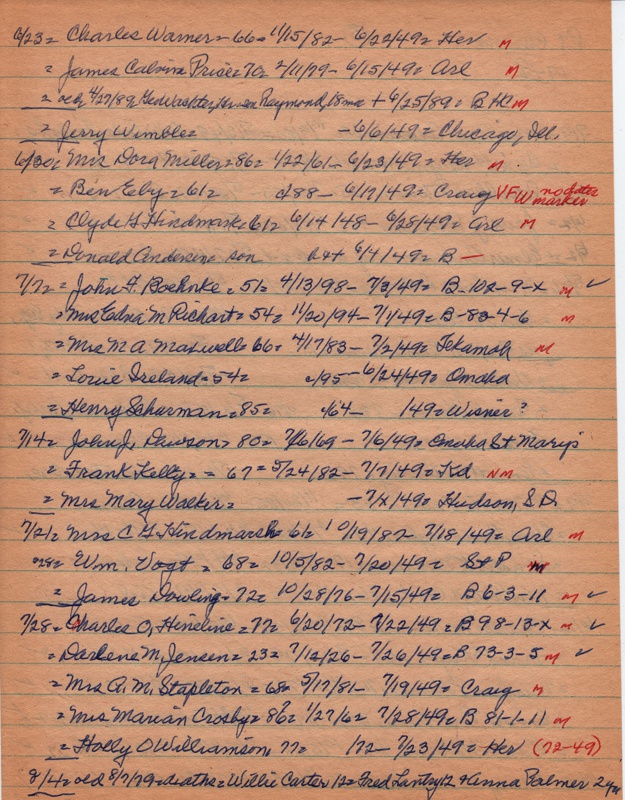 6/23= Charles Warner= 66= 11/15/82- 6/22/49= Her M
= James Calvin Price= 70= 2/11/79- 6/15/49= Arl M
= old 4/27/89, Raymond, 18 mo + 6/25/89= B M
= Jerry Wimble= -6/6/49= Chicago, Ill.
6/30= Mrs Dora Miller=86= 1/22/61- 6/23/49= Her M
= Ben Eby= 61= c/88- 6/17/49= Craig VFW no dates marker
= Clyde G Hindmarsh=61= 6/14/48- 6/28/49= Arl M
= Donald Andersen son 6/4/49= B —
7/7= = John F. Boehnke= 51= 4/13/98- 7/3/49= B-102-9-X M ✓
= Mrs Edna M Richart= 54= 11/20/94- 7/1/49= B-83-4-6 M
= Mrs M A Maxwell= 66= 4/17/83- 7/2/49= Tekamah M
= Louie Ireland= 54= c/95- 6/24/49= Omaha
= Henry Scharman= 85= c/64- /49= Wisner?
7/14= John J. Dawson= 80= 7/16/69- 7/6/49= Omaha St Mary's
= Frank Kelly= = 67= 5/24/82- 7/7/49= Kd NM
= Mrs Mary Walker= -7/x/49= Hudson, S.D.
7/21= Mrs C G Hindmarsh= 61= 10/19/87- 7/18/49= Arl M
Wm. Vogt = 68= 10/5/82- 7/20/49= St P M
= James Dowling= 72= 10/28/76- 7/15/49= B 6-3-11 M ✓
7/28= Charles O. Hineline= 77= 6/20/72- 7/22/49= B 98-13-X M ✓
= Darlene M, Jensen= 23= 7/12/26- 7/26/49= B 73-3-5 M ✓
= Mrs A. M. Stapleton= 68= 5/17/81- 7/19/49= Craig M
= Mrs Marian Crosby= 86? 1/27/62 7/28/49= B 81-1-11 M
= Holly O Williamson, 77= /72- 7/23/49= Her (72-49)
8/4= old 8/7/79=deaths= Willie Carter 12= Fred Lantry 12 + Anna Palmer 2 yr